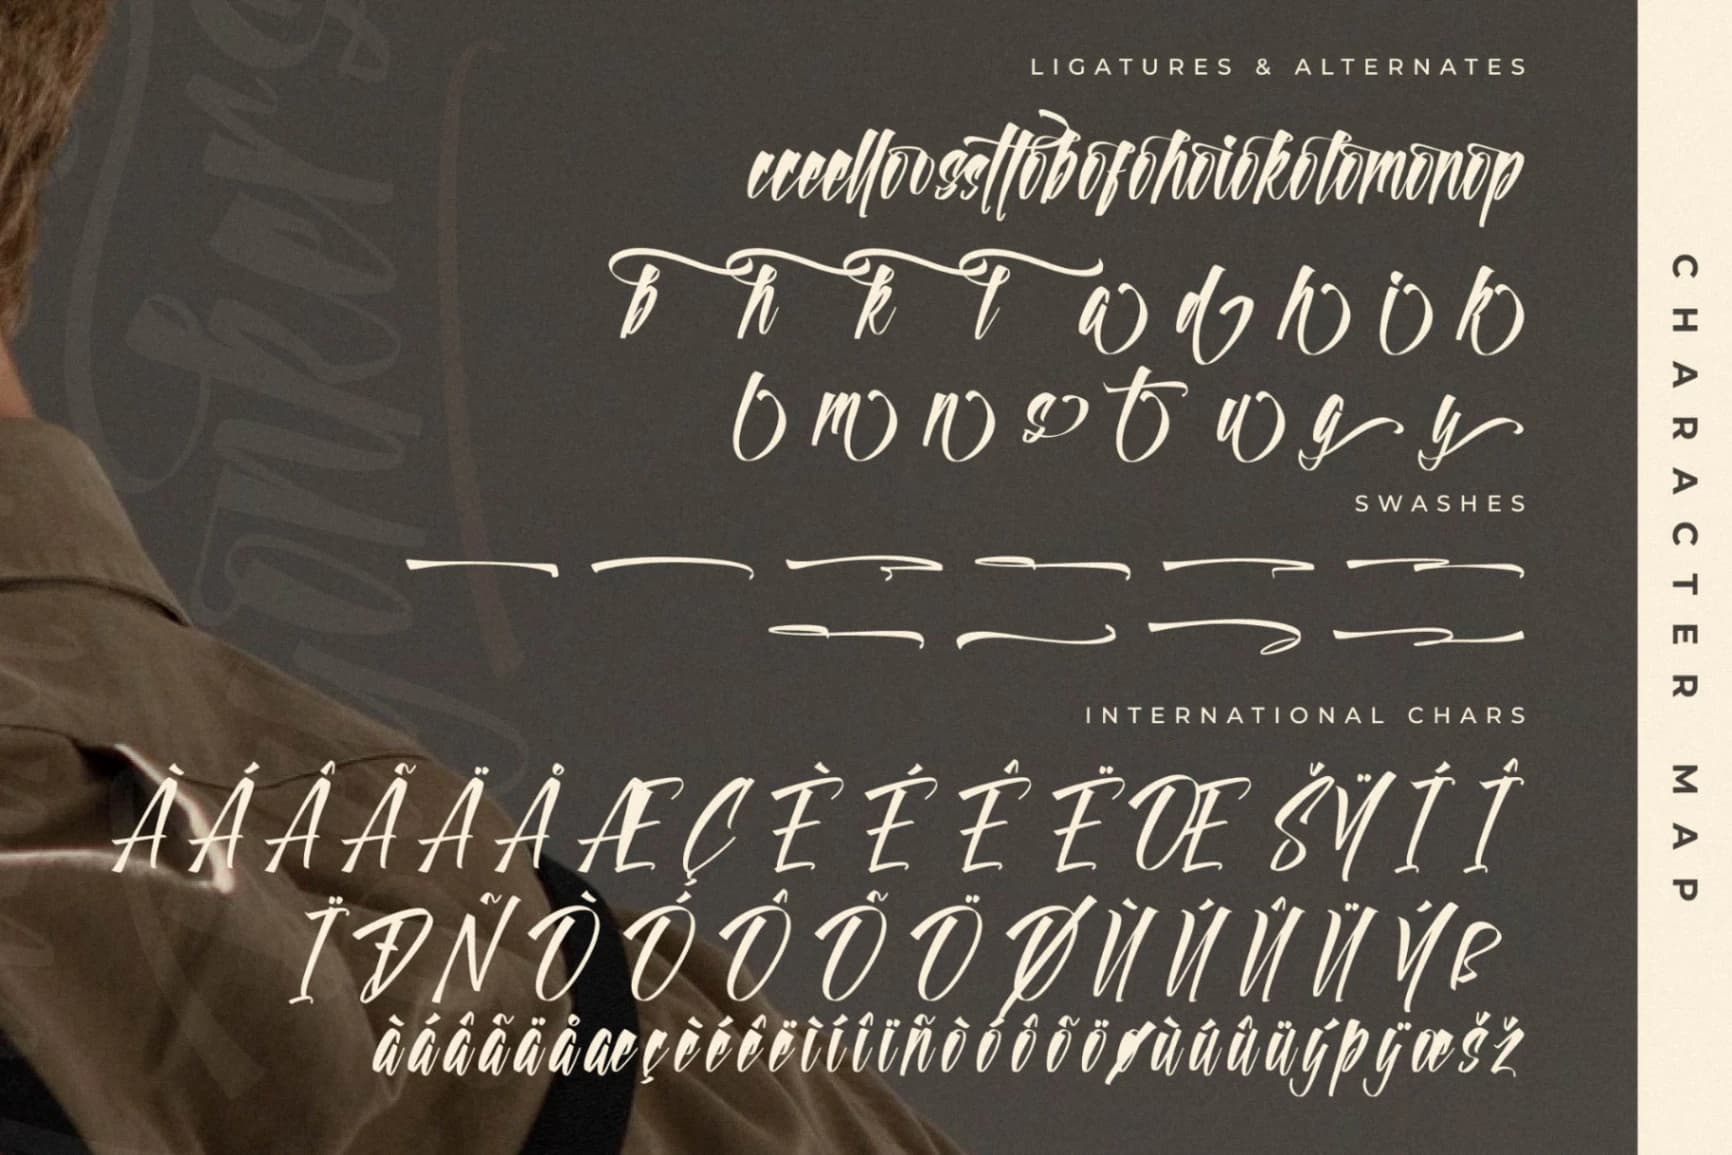 LIGATURES & ALTERNATES
cceelloossttobofohoiokolomonop
b h k l a d h i k
l m n s t u g y
SWASHES
INTERNATIONAL CHARS
À Á Â Ã Ä Å Æ Ç È É Ê Ë Œ Š Ÿ Í Î
Ï Ð Ñ Ò Ó Ô Õ Ö Ø Ù Ú Û Ü Ý ß
àáâãäåæçèéêëìíîïñòóôõöøùúûüýþÿœšž
CHARACTER MAP